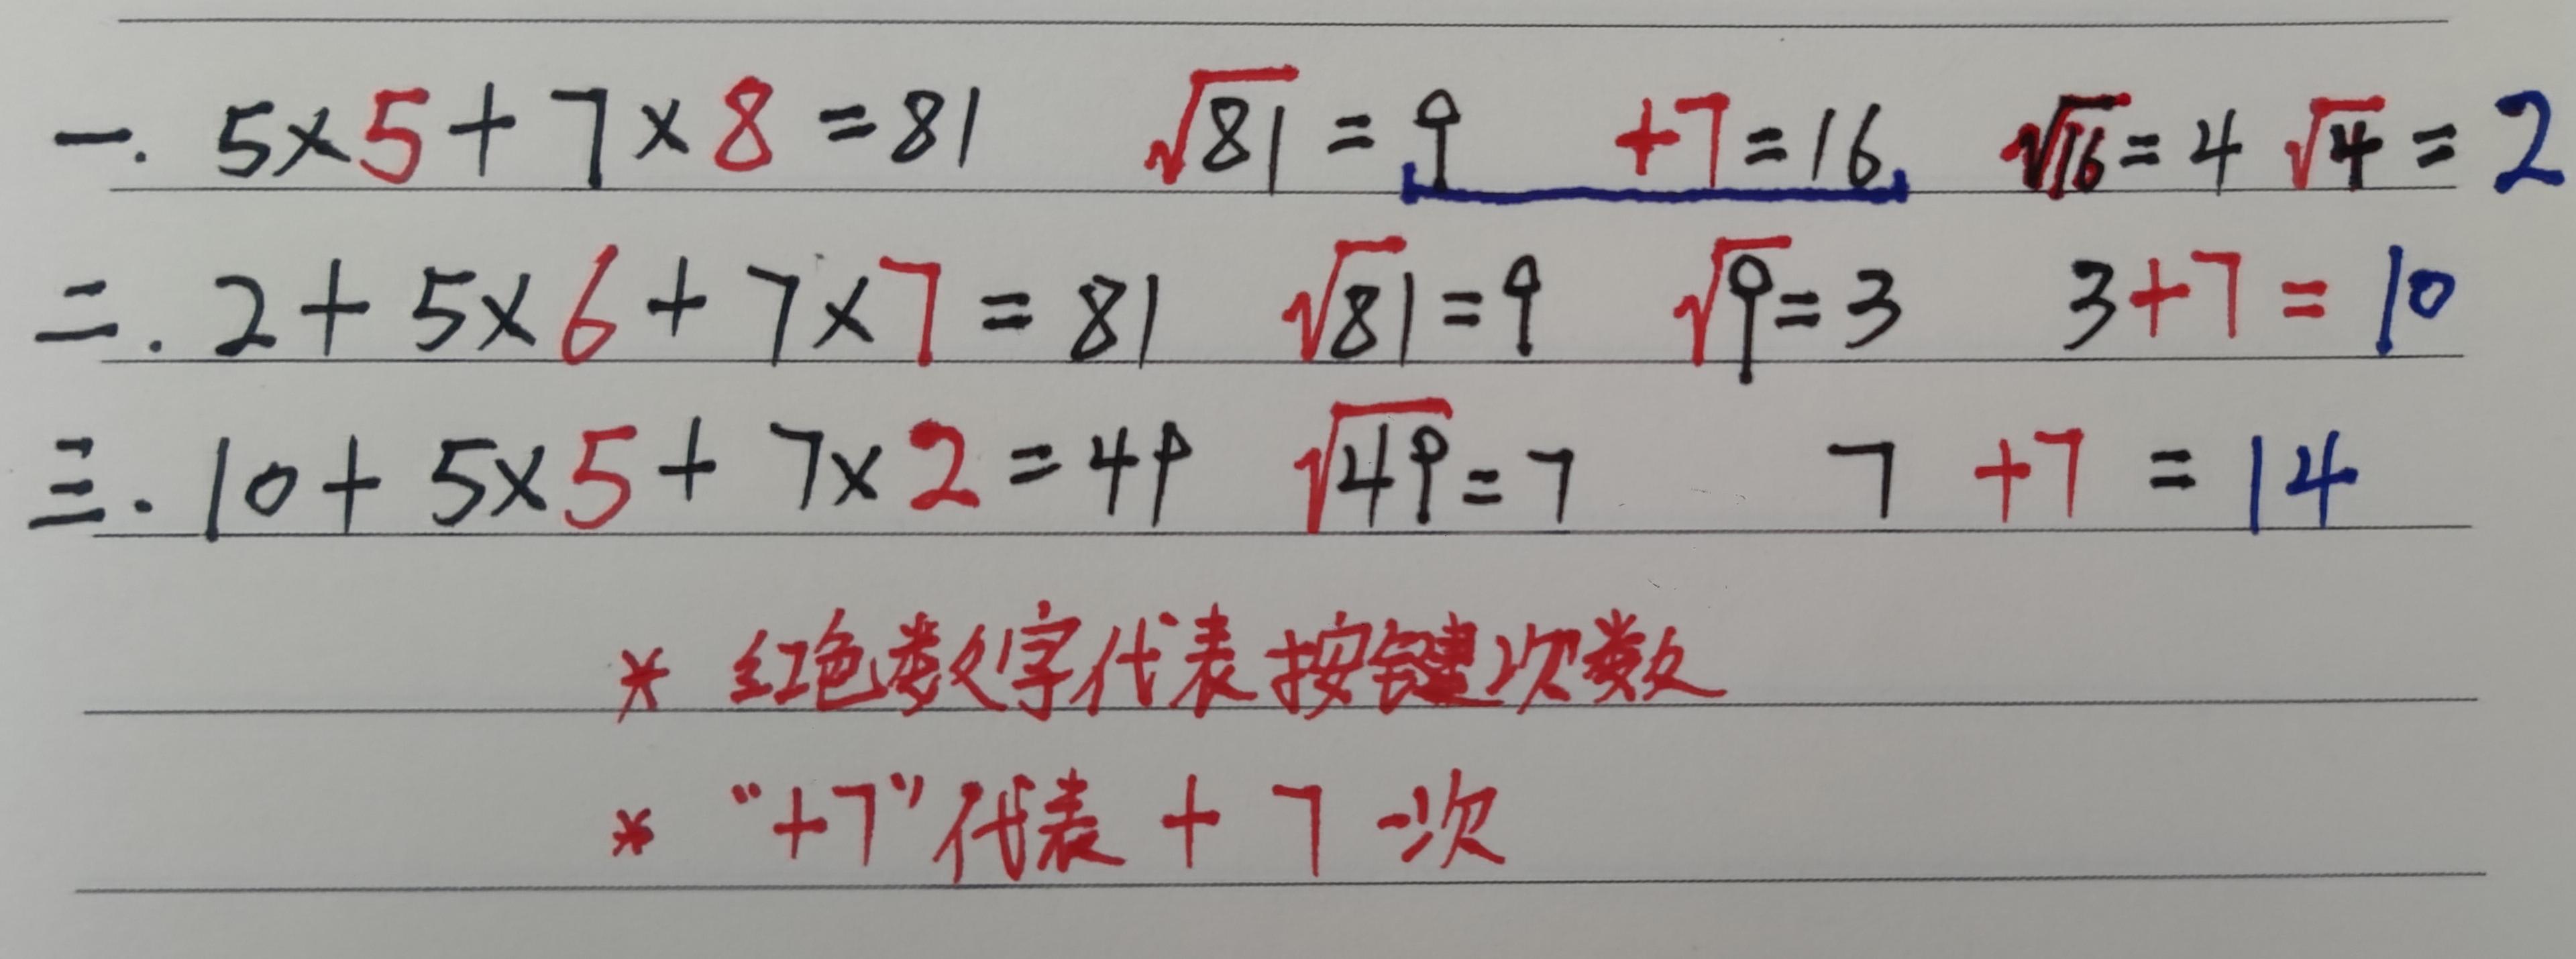 一. 5×5+7×8=81 √81=9 +7=16 √16=4 √4=2
二. 2+5×6+7×7=81 √81=9 √9=3 3+7=10
三. 10+5×5+7×2=49 √49=7 7 +7=14
* 红色数字代表按键次数
* “+7”代表+7一次